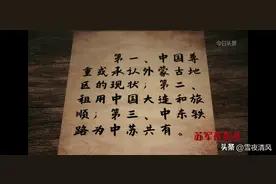 今日头条
第一、中国尊
重或承认外蒙古地
区的现状；第二、
租用中国大连和旅
顺；第三、中东铁
路为中苏共有。
头条 @雪夜清风